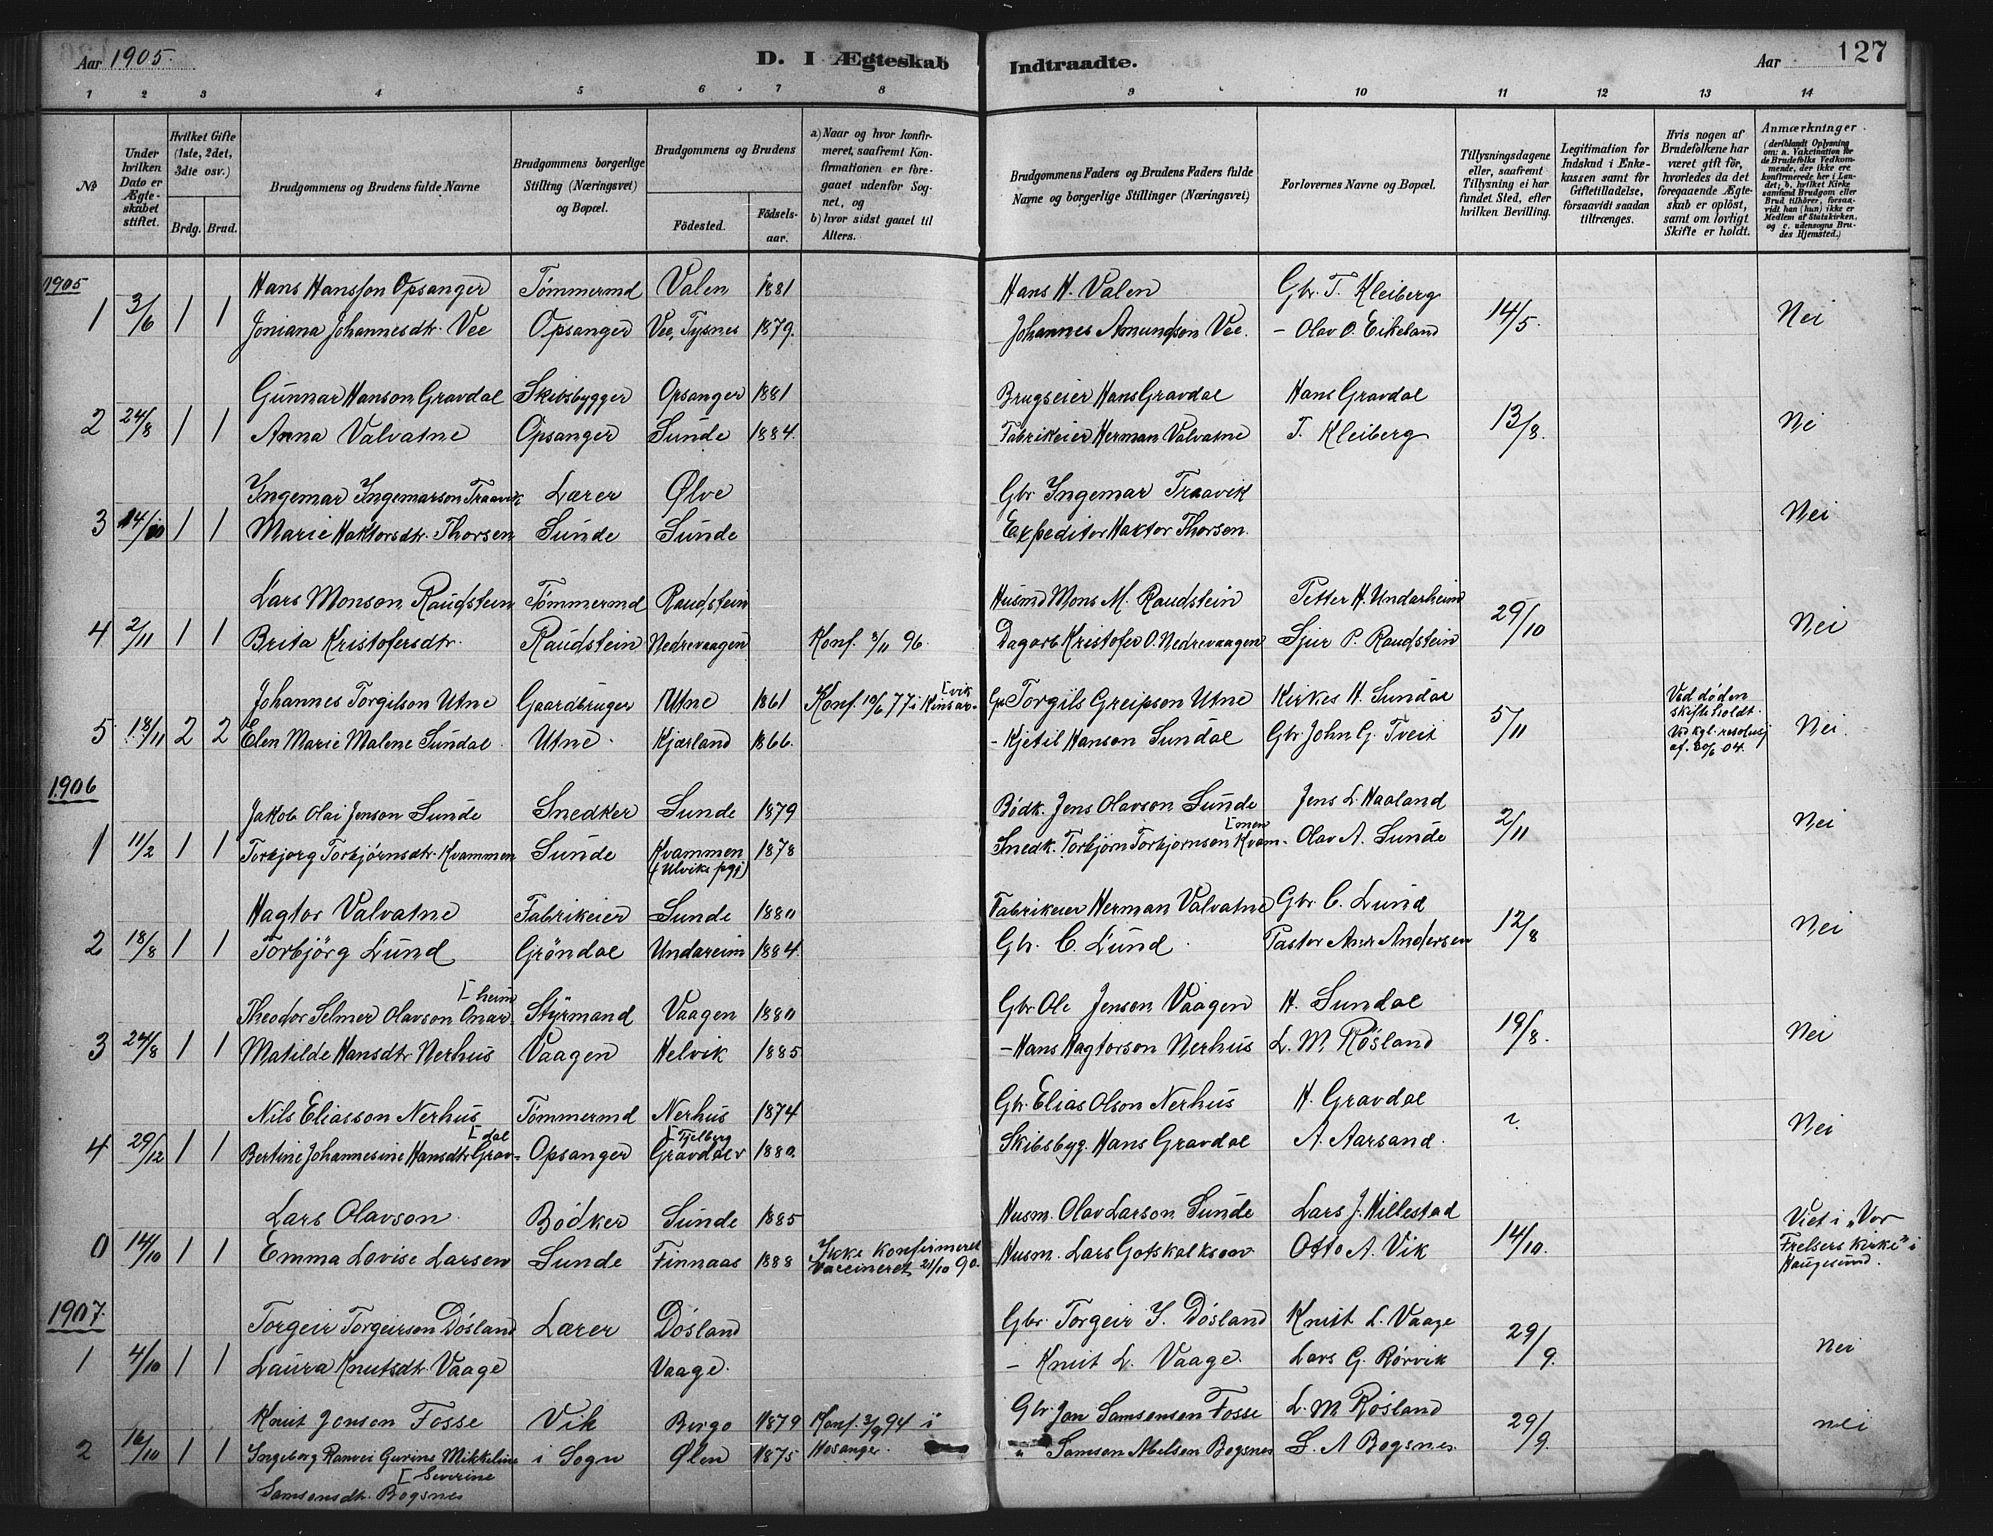 Aar 1905. D. I Ægteskab Indtraadte. Aar 127
1 2 3 4 5 6 7 8 9 10 11 12 13 14
№
Under hvilken Dato er Ægteskabet stiftet.
Hvilket Gifte (1ste, 2det, 3die osv.)
Brdg. Brud.
Brudgommens og Brudens fulde Navne
Brudgommens borgerlige Stilling (Næringsvei) og Bopæl.
Brudgommens og Brudens
Födested. Födselsaar.
a) Naar og hvor konfirmeret, saafremt Konfirmationen er foregaaet udenfor Sognet, og
b) hvor sidst gaaet til Alters.
Brudgommens Faders og Brudens Faders fulde Navne og borgerlige Stillinger (Næringsvei)
Forlovernes Navne og Bopæl.
Tillysningsdagene eller, saafremt Tillysning ei har fundet Sted, efter hvilken Bevilling.
Legitimation for Indskud i Enkekassen samt for Giftetilladelse, forsaavidt saadan tiltrænges.
Hvis nogen af Brudefolkene har været gift för, hvorledes da det foregaaende Ægteskab er oplöst, samt om lovligt Skifte er holdt.
Anmærkninger (deriblandt Oplysning om: a. Vakcination for de Brudefolks Vedkommende, der ikke ere konfirmerede her i Landet; b. hvilket Kirkesamfund Brudgom eller Brud tilhörer, forsaavidt han (hun) ikke er Medlem af Statskirken, og c. udensogns Brudes Hjemsted.)
1905
Hans Hansson Opsanger Tömmermd Valen 1881 Hans H. Valen Gbr. T. Kleiberg
1 3/6 1 1 Joniana Johannesdtr. Vee Opsanger Vee, Tysnes 1879. Johannes Amundson Vee. - Olav O. Eikeland 14/5. Nei
Gunnar Hanson Gravdal Skibsbygger Opsanger 1881 Brugseier Hans Gravdal Hans Gravdal
2 24/8 1 1 Anna Valvatne Opsanger Sunde 1884. Fabrikeier Herman Valvatne T. Kleiberg 13/8. Nei
Ingemar Ingemarson Traavik Lærer Ølve Gbr Ingemar Traavik
3 14/10 1 1 Marie Haktorsdtr. Thorsen Sunde Sunde Expeditor Haktor Thorsen. Nei
Lars Monson Raudstein Tömmermd Raudstein Husmd Mons M. Raudstein Petter H. Undarheim
4 2/11 1 1 Brita Kristofersdtr. Raudstein Nedrevaagen Konf. 3/11 96. Dagarb Kristofer O. Nedrevaagen Sjur P. Raudstein 29/10 Nei
Johannes Torgilson Utne Gaardbruger Utne 1861 Konf. 10/6 77 i Kinsar-[vik Gbr Torgils Greipson Utne Kirkes H. Sundal
5 18/11 2 2 Elen Marie Malene Sundal Utne. Kjærland 1866. - Kjetil Hanson Sundal Gbr. John G. Tveit 5/11 Ved døden skifte holdt. Ved kgl. resolusj af. 20/6 04. Nei.
1906
Jakob Olai Jenson Sunde Snedker Sunde 1879 Bödk. Jens Olavson Sunde Jens L. Haaland
1 11/2 1 1 Torbjorg Torbjörnsdtr. Kvammen Sunde Kvammen (Ulvike pgj) 1878 Snedk. Torbjörn Torbjornson Kvam-[men Olav A. Sunde 2/11 Nei
Hagtor Valvatne Fabrikeier Sunde 1880 Fabrikeier Herman Valvatne Gbr. C. Lund
2 18/8 1 1 Torbjörg Lund Gröndal Undareim 1884. Gbr. C. Lund. Pastor Andr Andersen 12/8 Nei
Theodor Selmer Olavson Onar-[heim Styrmand Vaagen 1880 Gbr Ole Jenson Vaagen H. Sundal
3 24/8 1 1 Matilde Hansdtr Nerhus Vaagen Helvik 1885 - Hans Hagtorson Nerhus L. M. Røsland 19/8. Nei
Nils Eliasson Nerhus Tömmermd Nerhus 1874 Gbr. Elias Olson Nerhus H. Gravdal
4 29/12 1 1 Bertine Johannesine Hansdtr Grav-[dal Opsanger Gravdal [Fjelberg 1880. Skibsbyg. Hans Gravdal A. Aarsand. ? Nei
Lars Olavson. Bödker Sunde 1885 Husm. Olav Larson Sunde Lars J. Hillestad
0 14/10 1 1 Emma Lovise Larsen Sunde Finnaas 1888 Ikke konfirmeret Vaccineret 21/10 90. Husm. Lars Gotskalkson Otto A. Vik 14/10. Viet i „Vor Frelsers Kirke" i Haugesund.
1907.
Torgeir Torgeirson Dösland Lærer Dösland Gbr. Torgeir I. Dösland Knut L. Vaage
1 4/10 1 1 Laura Knutsdtr Vaage Vaage. - Knut L. Vaage. Lars G. Rørvik 29/9. Nei
Knut Jonson Fosse Vik Bergo 1879 Konf. 3/9 94 i Hosanger. Gbr. Jon Samsonsen Fosse L. M. Røsland
2 16/10 1 1 Ingeborg Ranvei Gurine Mikkeline [Severine Samsonsdt. Bogsnes i Sogn Ølen 1875 " Samson Abelsen Bogsnes S. A Bogsnes 29/9. nei